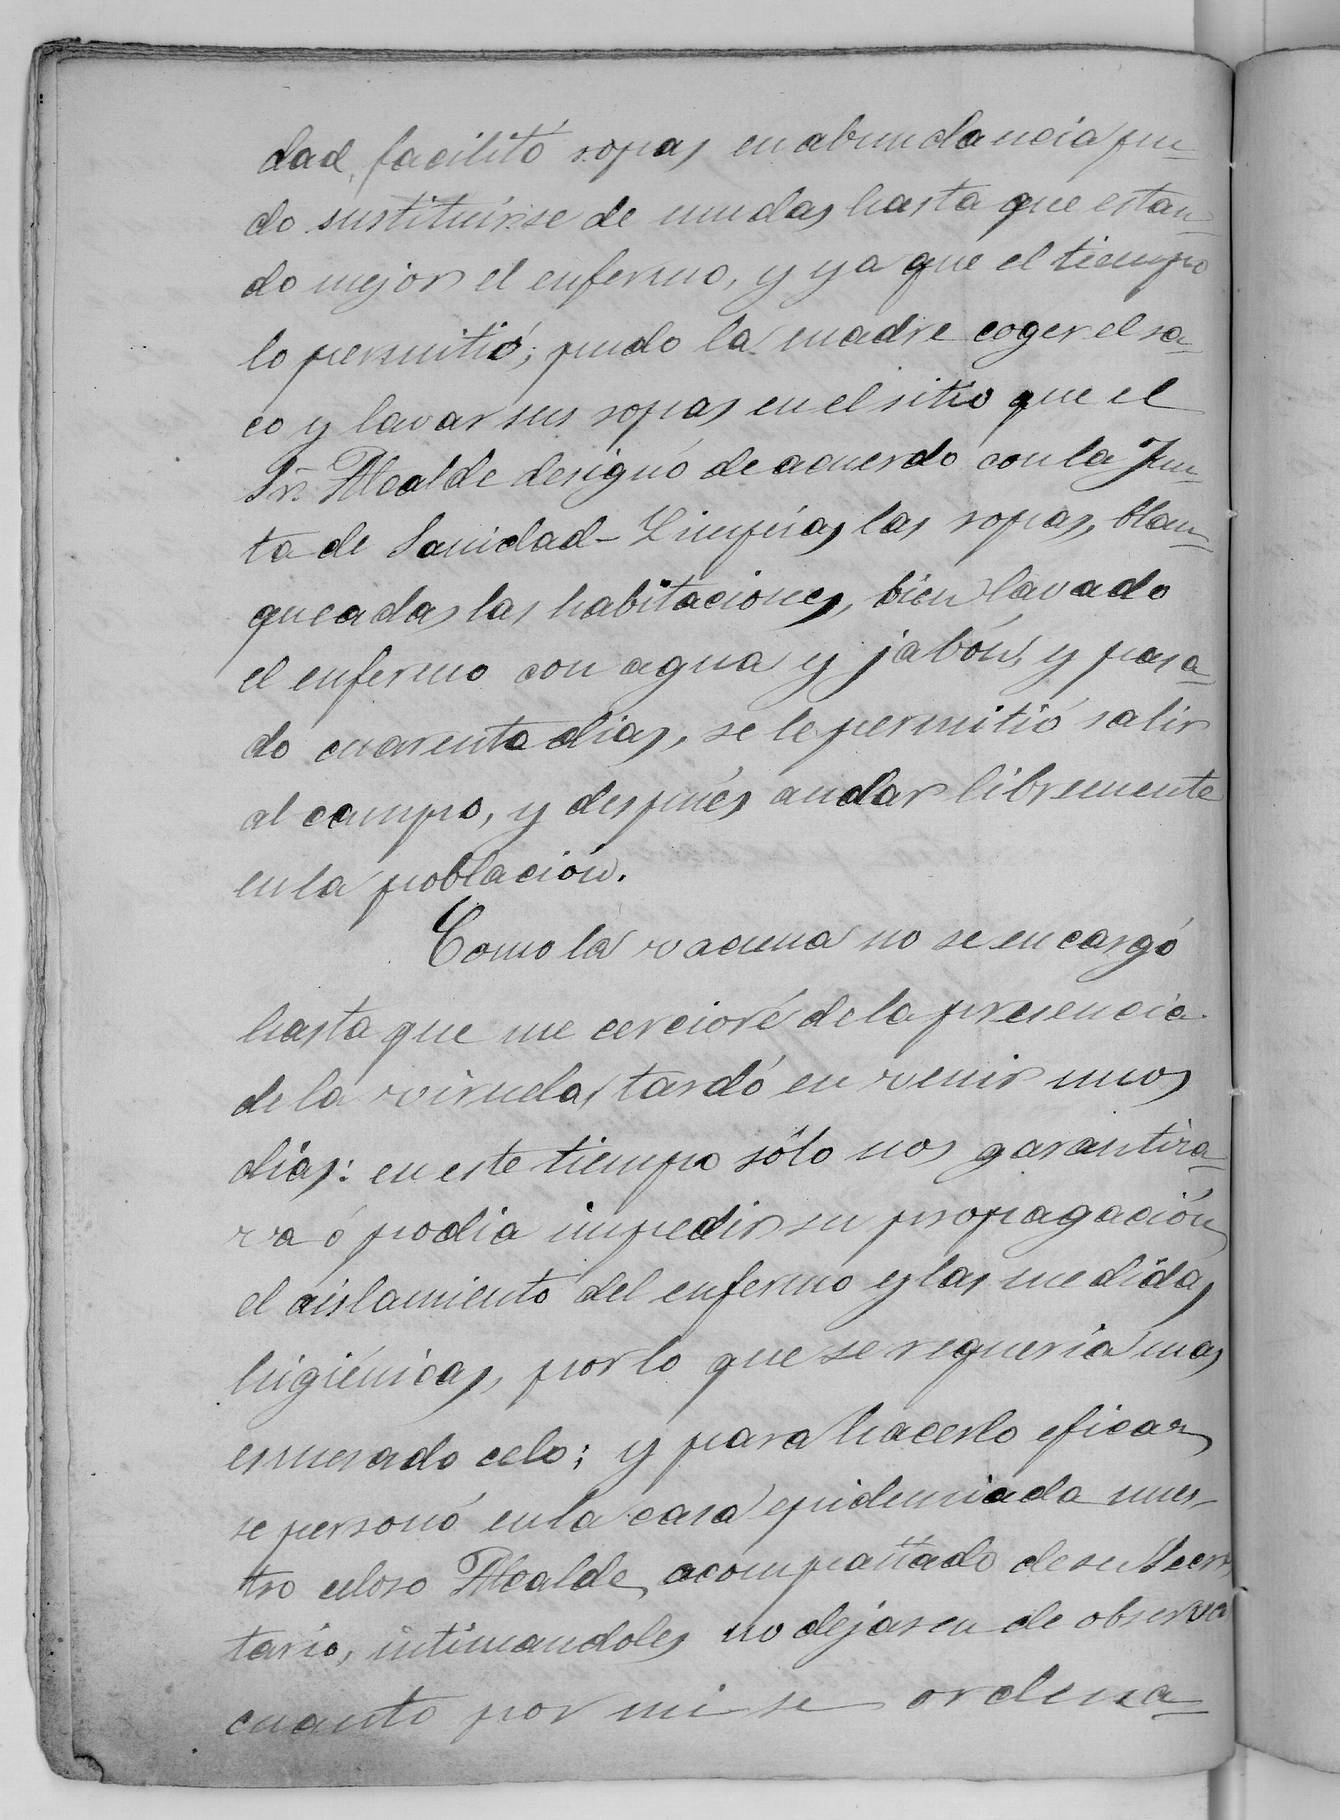 dad, facilitó ropas en abundancia pu-
do sustituirse de mudas hasta que estan-
do mejor el enfermo, y ya que el tiempo
lo permitió; pudo la madre coger el sa-
co y lavar sus ropas en el sitio que el
Sr. Alcalde designó de acuerdo con la Jun-
ta de Sanidad - Limpias las ropas, blan-
queadas las habitaciones, bien lavado
el enfermo con agua y jabón, y pasa-
do cuarenta dias, se le permitió salir
al campo, y después andar libremente
en la población.
Como la vacuna no se encargó
hasta que me cercioré de la presencia
de la viruela, tardó en venir unos
dias: en este tiempo sólo nos garantiza-
va ó podia impedir su propagación
el aislamiento del enfermo y las medidas
higiénicas, por lo que se requería mas
esmerado celo; y para hacerlo eficaz
se personó en la casa epidemiada nues-
tro celoso Alcalde, acompañado de su Secre-
tario, intimandoles no dejasen de observar
cuanto por mi se ordena-